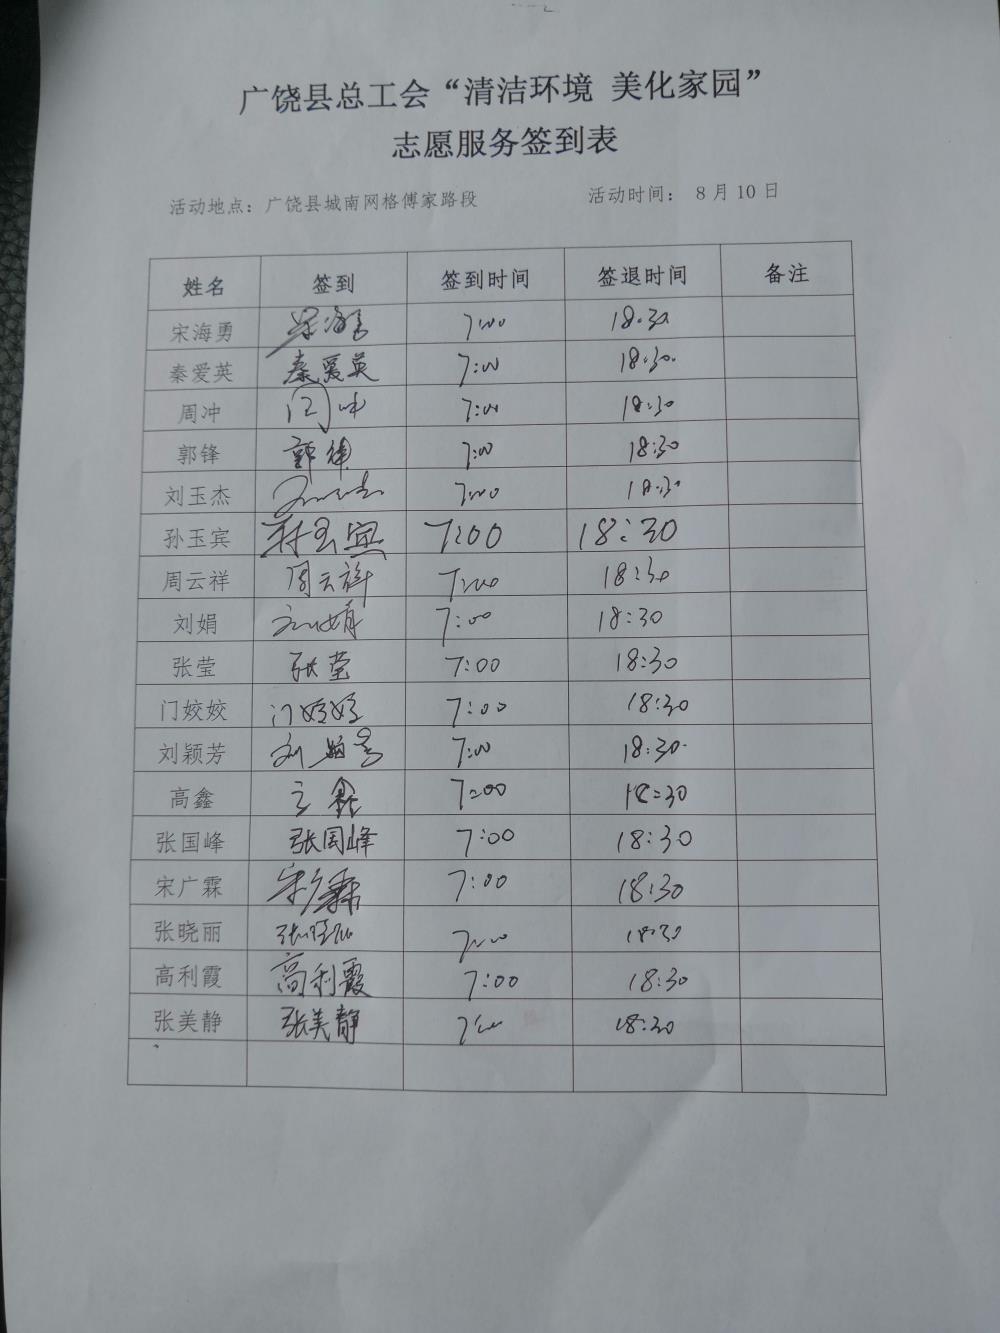 广饶县总工会“清洁环境 美化家园”
志愿服务签到表
活动地点：广饶县城南网格傅家路段 活动时间： 8 月 10 日
姓名 签到 签到时间 签退时间 备注
宋海勇 宋海勇 7:00 18:30
秦爱英 秦爱英 7:00 18:30
周冲 周冲 7:00 18:30
郭锋 郭锋 7:00 18:30
刘玉杰 刘玉杰 7:00 18:30
孙玉宾 孙玉宾 7:00 18:30
周云祥 周云祥 7:00 18:30
刘娟 刘娟 7:00 18:30
张莹 张莹 7:00 18:30
门姣姣 门姣姣 7:00 18:30
刘颖芳 刘颖芳 7:00 18:30
高鑫 高鑫 7:00 18:30
张国峰 张国峰 7:00 18:30
宋广霖 宋广霖 7:00 18:30
张晓丽 张晓丽 7:00 18:30
高利霞 高利霞 7:00 18:30
张美静 张美静 7:00 18:30